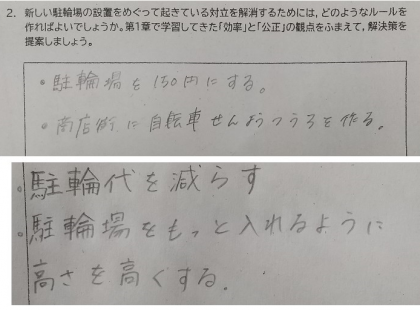 2. 新しい駐輪場の設置をめぐって起きている対立を解消するためには，どのようなルールを
作ればよいでしょうか。第1章で学習してきた「効率」と「公正」の観点をふまえて，解決策を
提案しましょう。
・駐輪場を150円にする。
・商店街に自転車せんようつうろを作る。
・駐輪代を減らす
・駐輪場をもっと入れるように
高さを高くする。